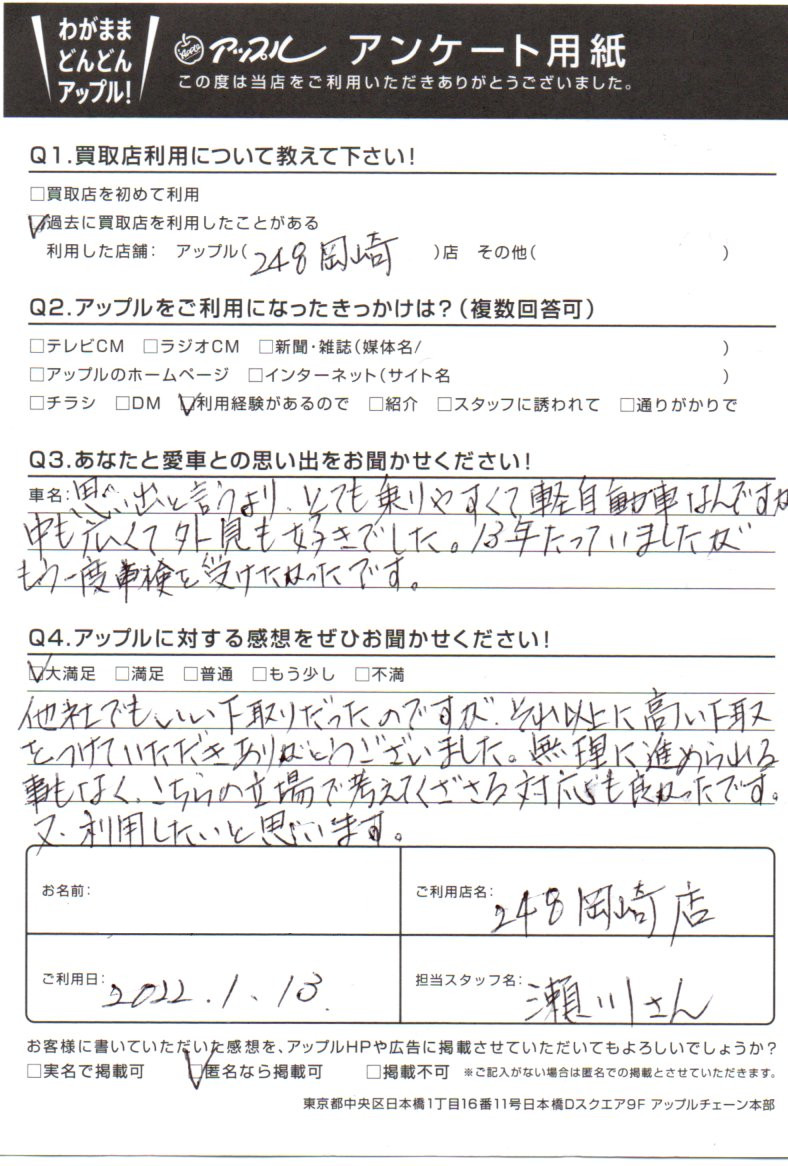 わがまま
どんどん
アップル!
アップル アンケート用紙
この度は当店をご利用いただきありがとうございました。
Q1.買取店利用について教えて下さい!
□買取店を初めて利用
☑過去に買取店を利用したことがある
利用した店舗: アップル(248岡崎)店 その他( )
Q2.アップルをご利用になったきっかけは?(複数回答可)
□テレビCM □ラジオCM □新聞・雑誌(媒体名/ )
□アップルのホームページ □インターネット(サイト名 )
□チラシ □DM ☑利用経験があるので □紹介 □スタッフに誘われて □通りがかりで
Q3.あなたと愛車との思い出をお聞かせください!
車名:思い出と言うより、とても乗りやすくて軽自動車なんですが
中も広くて外見も好きでした。13年たっていましたが
もう一度車検を受けたかったです。
Q4.アップルに対する感想をぜひお聞かせください!
☑大満足 □満足 □普通 □もう少し □不満
他社でもいい下取りだったのですが、それ以上に高い下取
をつけていただきありがとうございました。無理に進められる
事もなく、こちらの立場で考えてくださる対応も良かったです。
又、利用したいと思います。
お名前:
ご利用店名: 248岡崎店
ご利用日: 2022.1.13.
担当スタッフ名: 瀬川さん
お客様に書いていただいた感想を、アップルHPや広告に掲載させていただいてもよろしいでしょうか?
□実名で掲載可 ☑匿名なら掲載可 □掲載不可 ※ご記入がない場合は匿名での掲載とさせていただきます。
東京都中央区日本橋1丁目16番11号日本橋Dスクエア9F アップルチェーン本部